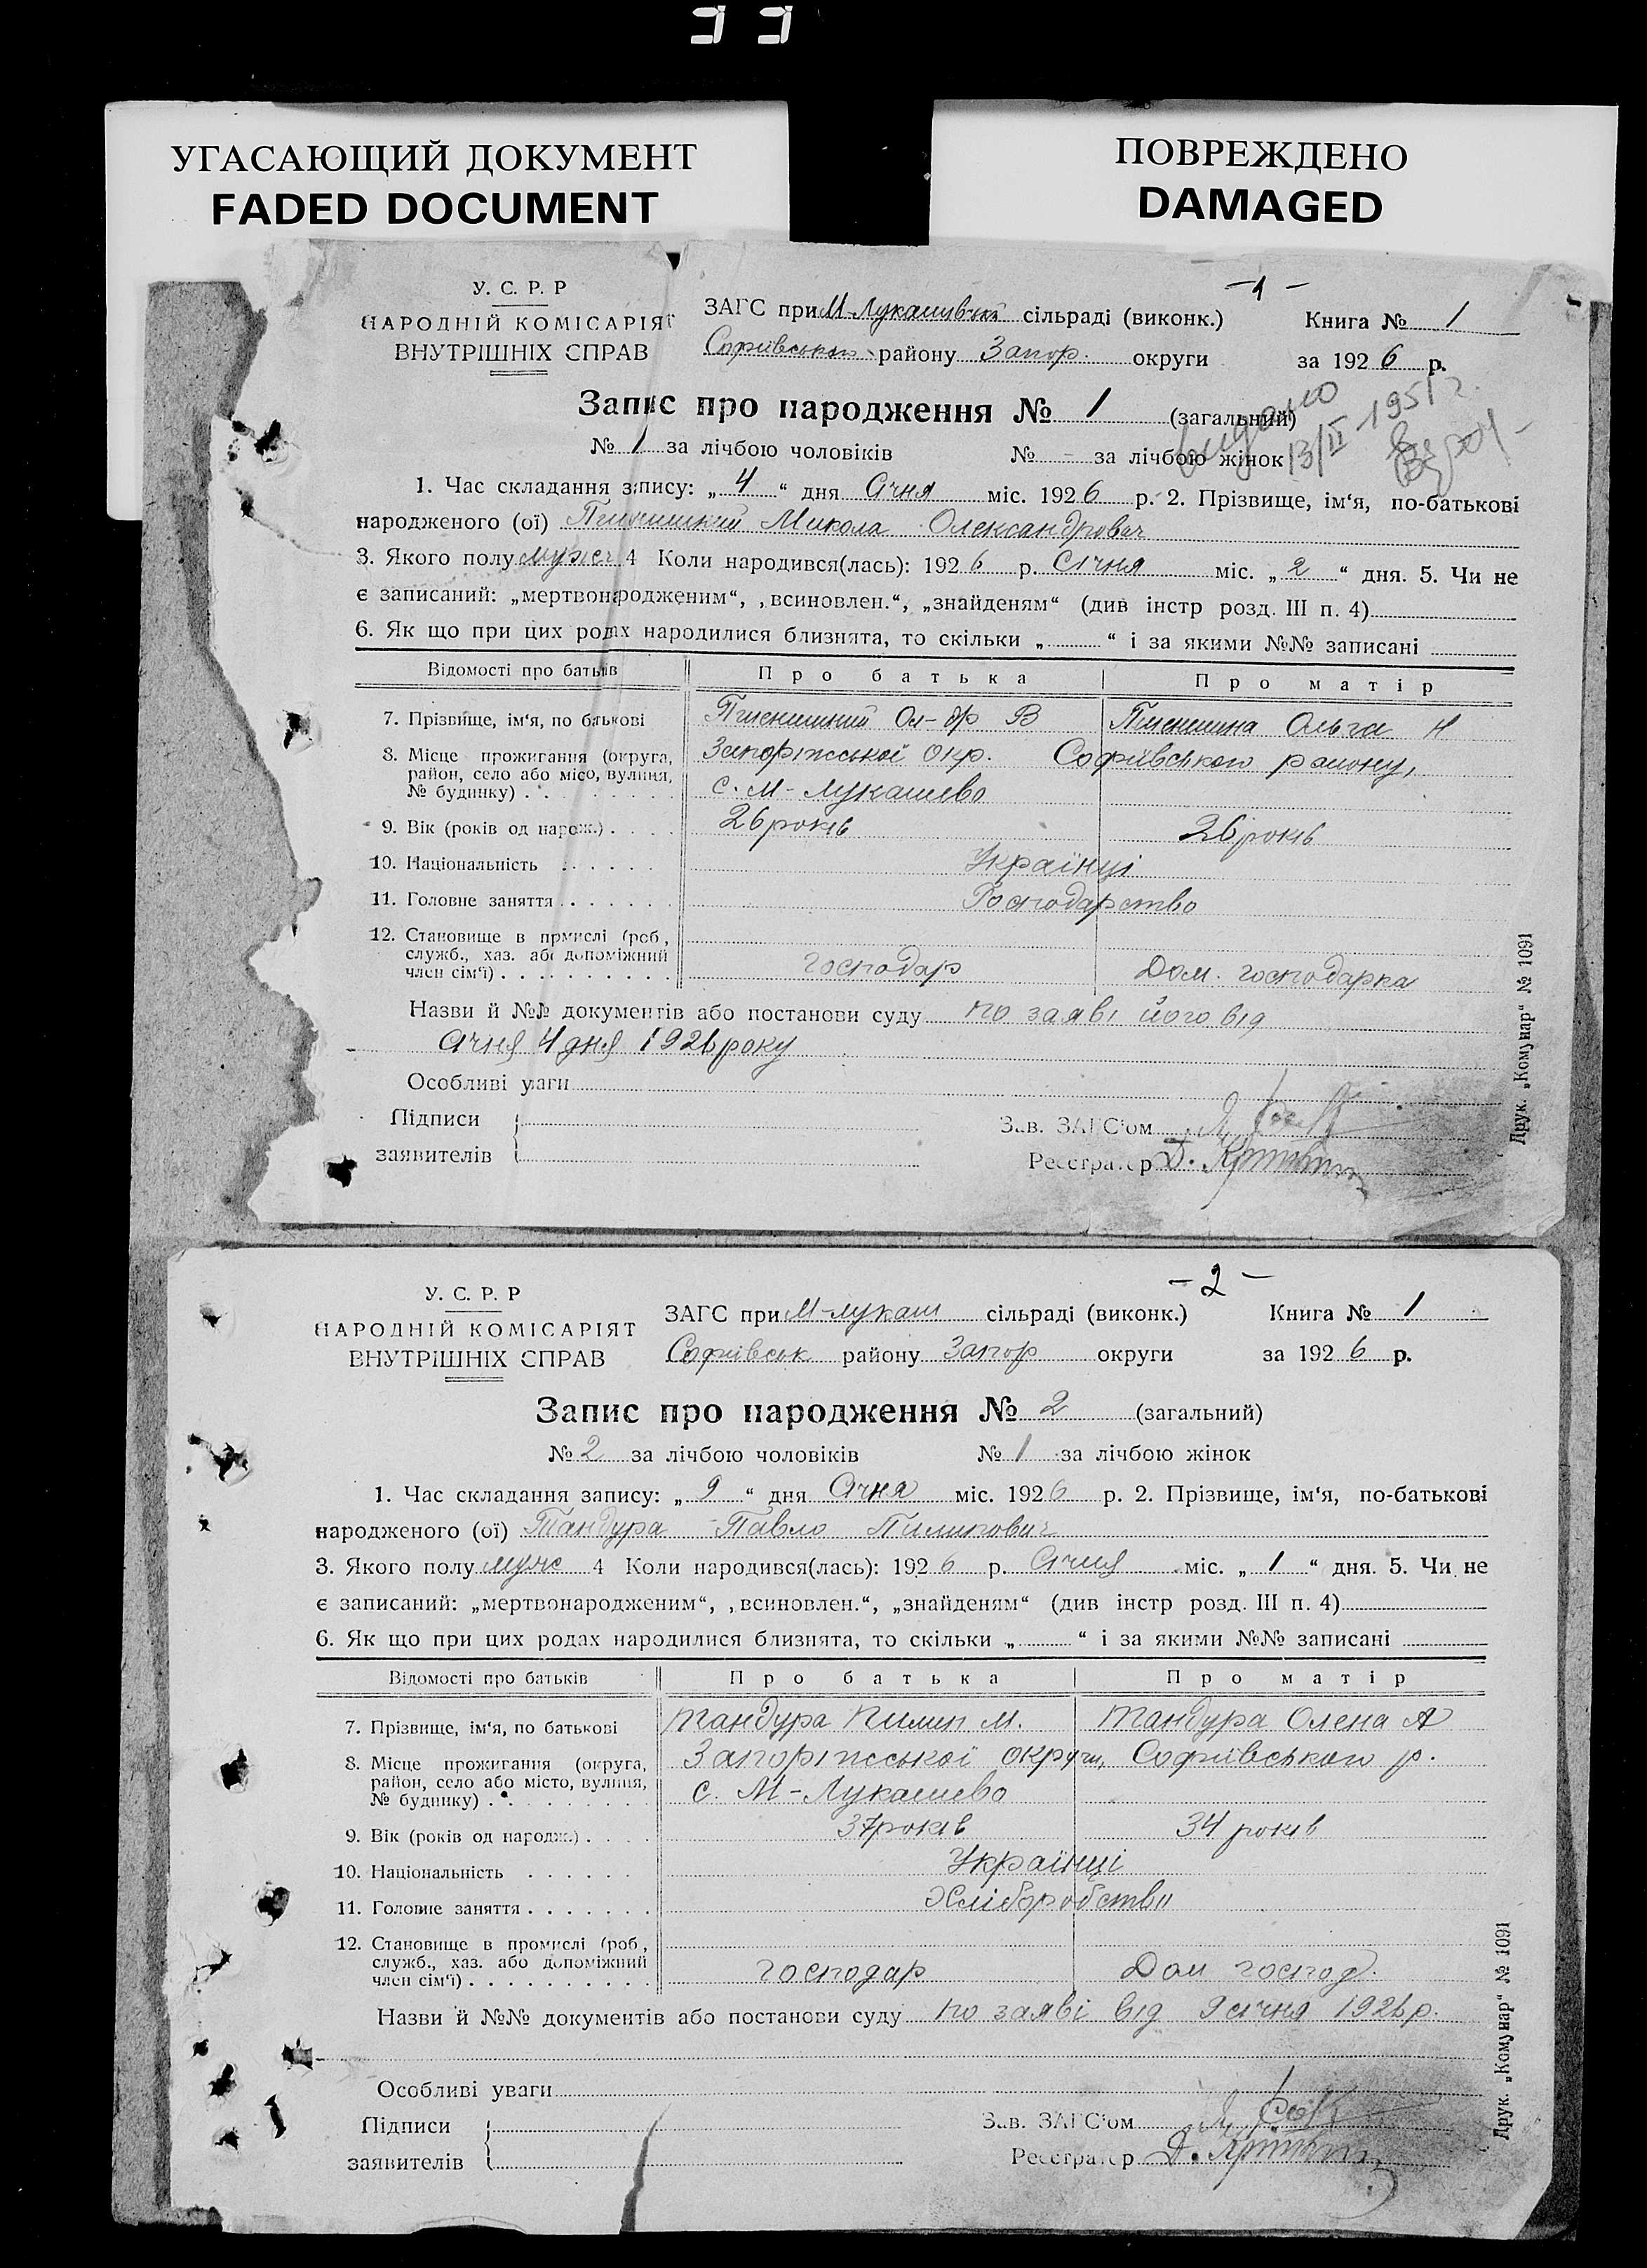 УГАСАЮЩИЙ ДОКУМЕНТ
FADED DOCUMENT
ПОВРЕЖДЕНО
DAMAGED
-1-
У. С. Р. Р
НАРОДНІЙ КОМІСАРІЯТ
ВНУТРІШНІХ СПРАВ
ЗАГС при М-Лукашівській сільраді (виконк.)
Софіївського району Запор. округи
Книга № 1
за 1926 р.
Запис про народження № 1 (загальний)
видано 13/II 1951 г.
№ 1 за лічбою чоловіків № - за лічбою жінок
1. Час складання запису: „4“ дня січня міс. 1926 р. 2. Прізвище, ім‘я, по-батькові
народженого (ої) Микола Олександрович
3. Якого полу мужеч 4 Коли народився(лась): 1926 р. Січня міс. „2“ дня. 5. Чи не
є записаний: „мертвонародженим“, „всиновлен.“, „знайденям“ (див інстр розд. III п. 4)
6. Як що при цих родах народилися близнята, то скільки „ “ і за якими №№ записані
Відомості про батьків Про батька Про матір
7. Прізвище, ім‘я, по батькові Ол-др В Ольга Н
8. Місце прожигання (округа, район, село або місо, вулиця, № будинку) Запоріжської окр. Софіївського району,
с. М-Лукашево
9. Вік (років од нарож.) 26 років 26 років
10. Національність Українці
11. Головне заняття Господарство
12. Становище в прмислі (роб., служб., хаз. або допоміжний член сім‘ї) господар Дом. господарка
Назви й №№ документів або постанови суду по заяві його від
січня 4 дня 1926 року
Особливі уваги
Підписи
заявителів
Зав. ЗАГС‘ом
Реєстратор Д.
Друк. „Комунар“ № 1091
-2-
У. С. Р. Р
НАРОДНІЙ КОМІСАРІЯТ
ВНУТРІШНІХ СПРАВ
ЗАГС при М-Лукаш сільраді (виконк.)
Софіївськ району Запор округи
Книга № 1
за 1926 р.
Запис про народження № 2 (загальний)
№ 2 за лічбою чоловіків № 1 за лічбою жінок
1. Час складання запису: „9“ дня січня міс. 1926 р. 2. Прізвище, ім‘я, по-батькові
народженого (ої) Тандура Павло Пилипович
3. Якого полу муже 4 Коли народився(лась): 1926 р. січня міс. „1“ дня. 5. Чи не
є записаний: „мертвонародженим“, „всиновлен.“, „знайденям“ (див інстр розд. III п. 4)
6. Як що при цих родах народилися близнята, то скільки „ “ і за якими №№ записані
Відомості про батьків Про батька Про матір
7. Прізвище, ім‘я, по батькові Тандура Пилип М. Тандура Олена А
8. Місце прожигання (округа, район, село або місто, вулиця, № будинку) Запоріжської округи, Софіївського р.
с. М-Лукашево
9. Вік (років од народж.) 37 років 34 років
10. Національність Українці
11. Головне заняття Хліборобство
12. Становище в промислі (роб., служб., хаз. або допоміжний член сім‘ї) господар Дом господ.
Назви й №№ документів або постанови суду по заяві від 9 січня 1926 р.
Особливі уваги
Підписи
заявителів
Зав. ЗАГС‘ом
Реєстратор Д.
Друк. „Комунар“ № 1091